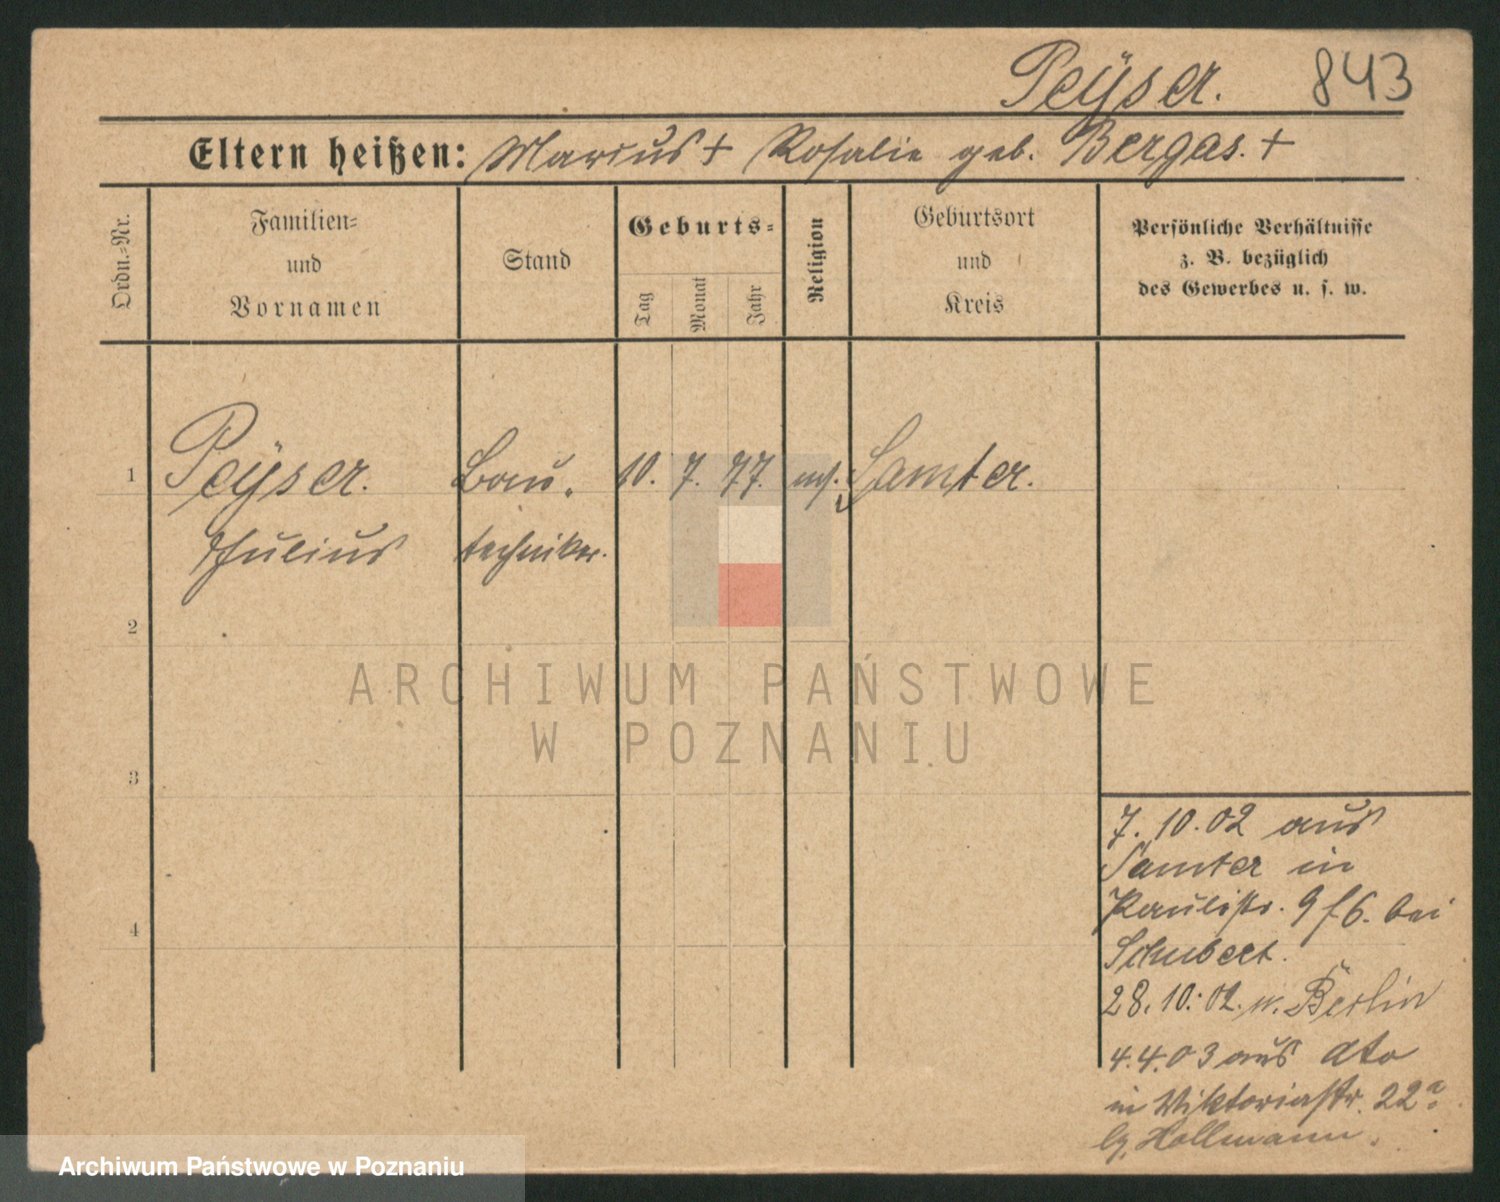 Peÿser. 843
Eltern heißen: Marcus + Rosalie geb. Bergas. +
Ordn.-Nr.
Familien-
und
Vornamen
Stand
Geburts-
Tag
Monat
Jahr
Religion
Geburtsort
und
Kreis
Persönliche Verhältnisse
z. B. bezüglich
des Gewerbes u. s. w.
1 Peÿser. Bau- 10. 7. 77. mos. Samter.
Julius techniker.
2
3
4
ARCHIWUM PAŃSTWOWE
W POZNANIU
7. 10. 02 aus
Samter in
Paulistr. 9 bei
Schubert.
28. 10. 02. n. Berlin
4.4.03 aus dto
in Viktoriastr. 22a
Hollmann.
Archiwum Państwowe w Poznaniu